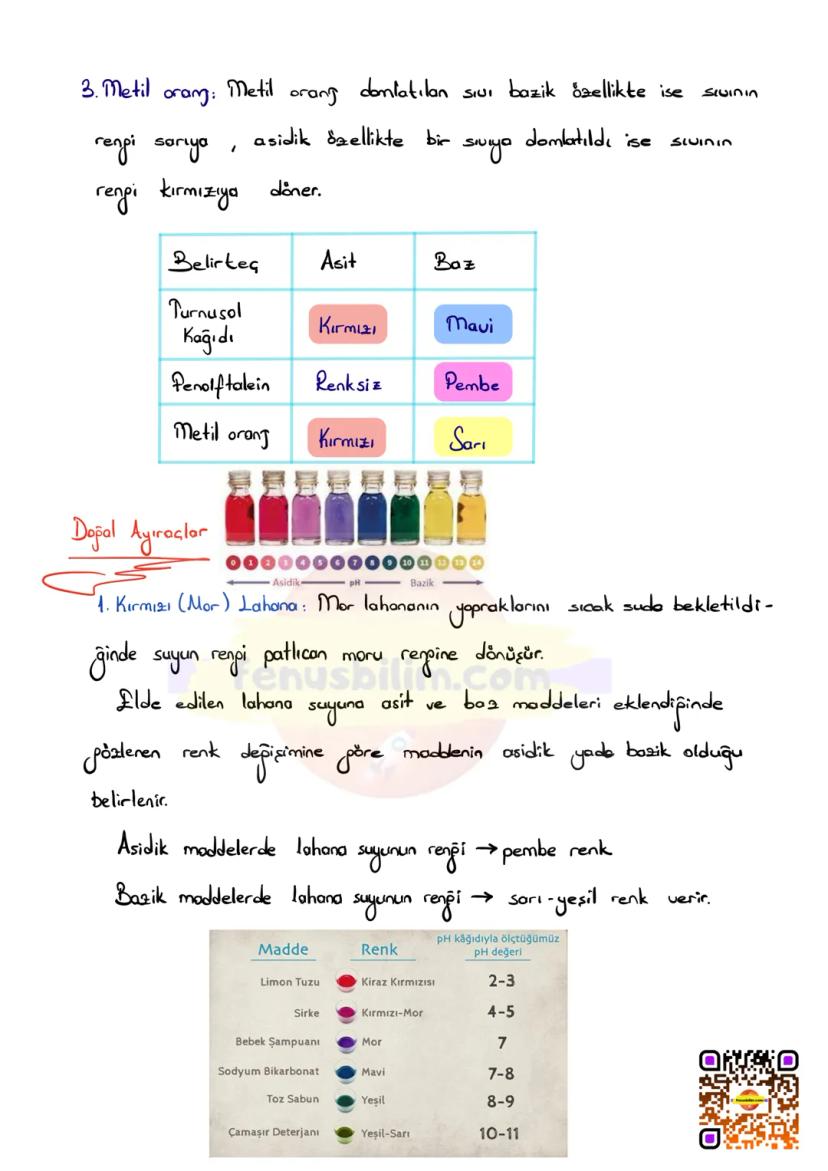 3. Metil oranj: Metil oranj damlatılan sıvı bazik özellikte ise sıvının
rengi sarıya, asidik özellikte bir sıvıya damlatıldı ise sıvının
rengi kırmızıya döner.
Belirteç Asit Baz
Turnusol Kağıdı Kırmızı Mavi
Fenolftalein Renksiz Pembe
Metil oranj Kırmızı Sarı
Doğal Ayıraçlar
0 1 2 3 4 5 6 7 8 9 10 11 12 13 14
Asidik pH Bazik
1. Kırmızı (Mor) Lahana: Mor lahananın yapraklarını sıcak suda bekletildi-
ğinde suyun rengi patlıcan moru rengine dönüşür.
fenusbilim.com
Elde edilen lahana suyuna asit ve baz maddeleri eklendiğinde
gözlenen renk değişimine göre maddenin asidik yada bazik olduğu
belirlenir.
Asidik maddelerde lahana suyunun rengi → pembe renk
Bazik maddelerde lahana suyunun rengi → sarı-yeşil renk verir.
Madde Renk pH kâğıdıyla ölçtüğümüz pH değeri
Limon Tuzu Kiraz Kırmızısı 2-3
Sirke Kırmızı-Mor 4-5
Bebek Şampuanı Mor 7
Sodyum Bikarbonat Mavi 7-8
Toz Sabun Yeşil 8-9
Çamaşır Deterjanı Yeşil-Sarı 10-11
fenusbilim.com